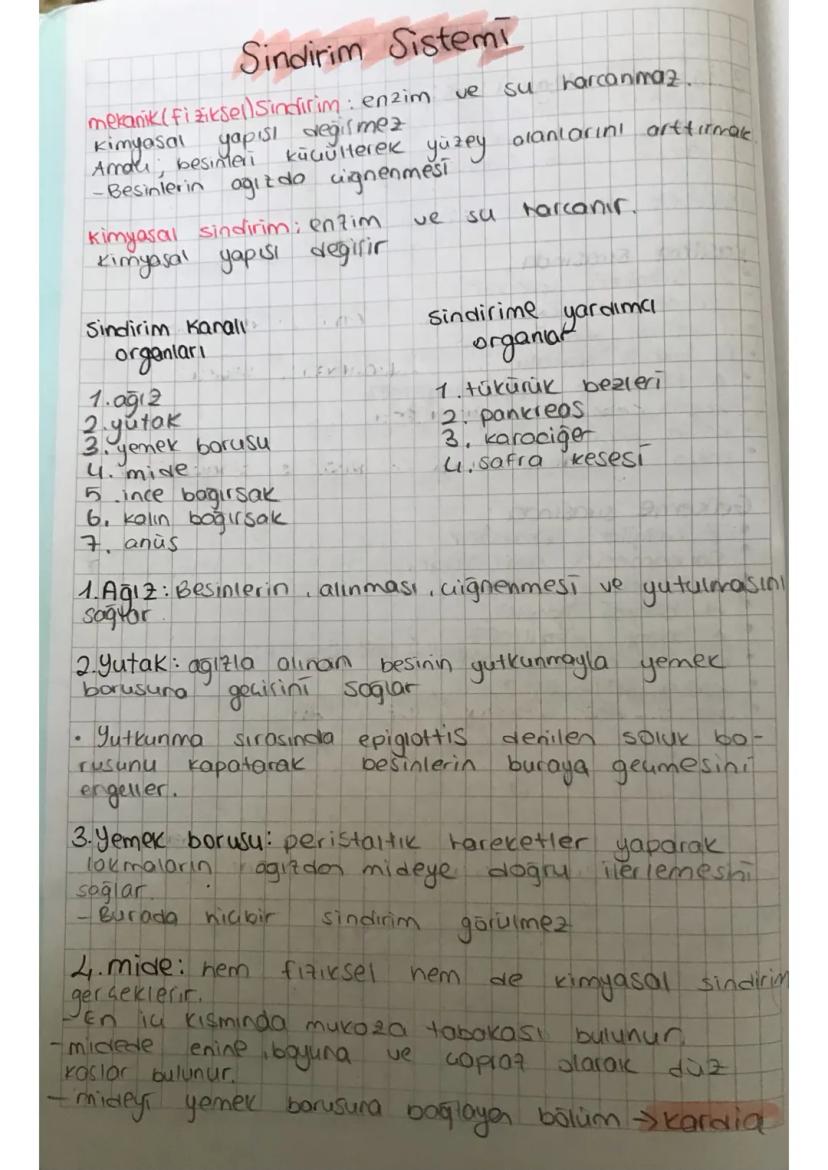 Sindirim Sistemi
mekanik(fiziksel)Sindirim: enzim ve su harcanmaz.
Kimyasal yapısı değişmez
Amaç; besinleri küçülterek yüzey alanlarını arttırmak
-Besinlerin ağızda çiğnenmesi
kimyasal sindirim: enzim ve su harcanır.
kimyasal yapısı değişir
Sindirim Kanalı
organları
1.ağız
2.yutak
3.yemek borusu
4.mide
5.ince bağırsak
6.kalın bağırsak
7.anüs
sindirime yardımcı
organlar
1.tükürük bezleri
2.pankreas
3.karaciğer
4.safra kesesi
1.Ağız: Besinlerin, alınması, çiğnenmesi ve yutulmasını
sağlar.
2.Yutak: ağızla alınan besinin yutkunmayla yemek
borusuna geçişini sağlar
• Yutkunma sırasında epiglottis denilen soluk bo-
rusunu kapatarak besinlerin buraya geçmesini
engeller.
3.Yemek borusu: peristaltik hareketler yaparak
lokmaların ağızdan mideye doğru ilerlemesni
sağlar.
- Burada hiçbir sindirim görülmez
4.mide: hem fiziksel hem de kimyasal sindirim
gerçeklerir.
- En iç kısmında mukoza tabakası bulunur.
-midede enine, boyuna ve çapraz olarak düz
kaslar bulunur.
-mideyi yemek borusuna bağlayan bölüm → kardia